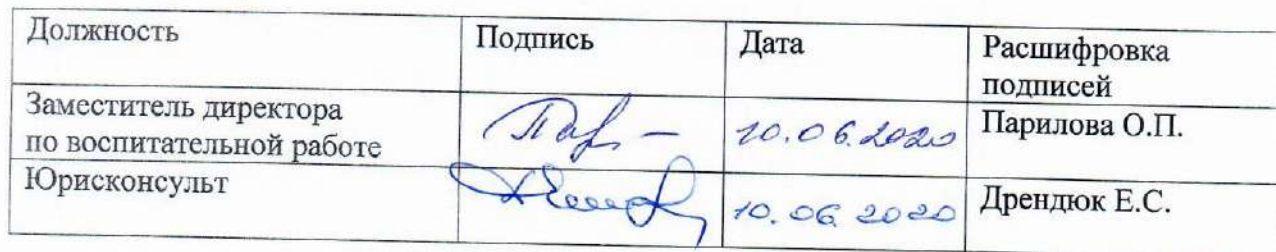 Должность Подпись Дата Расшифровка
подписей
Заместитель директора
по воспитательной работе 10.06.2020 Парилова О.П.
Юрисконсульт 10.06 2020 Дрендюк Е.С.